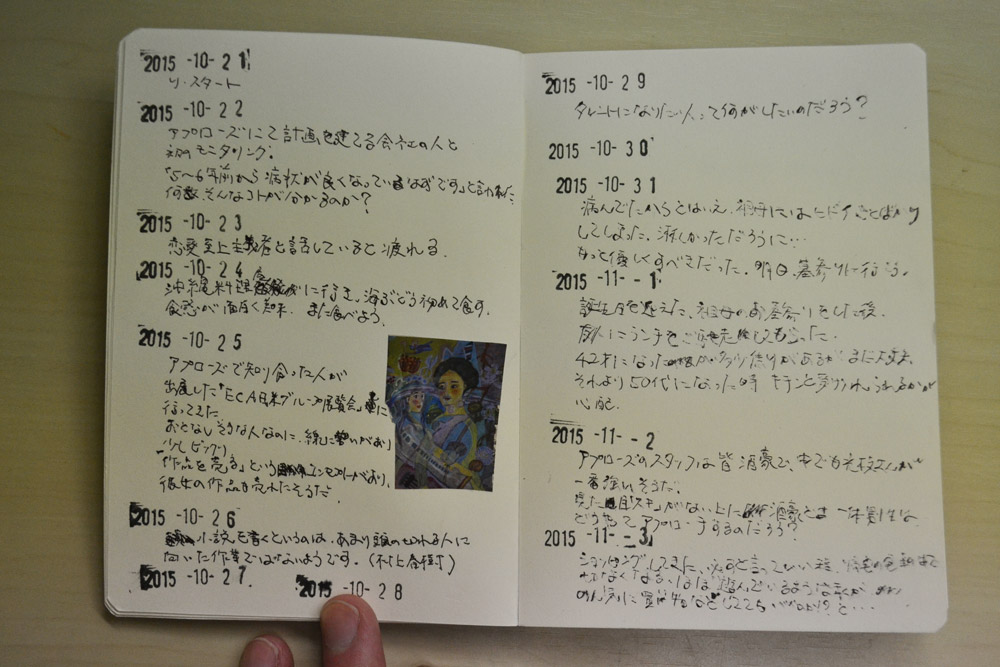 2015 -10- 21
リ・スタート
2015 -10- 22
アプローズにて計画を建てる会社の人と
初のモニタリング.
「5〜6年前から病状が良くなっているはずです」と言われた.
何故、そんなコトが分かるのか?
2015 -10- 23
恋愛至上主義者と話していると疲れる.
2015 -10- 24
沖縄料理 に行き、海ぶどう初めて食す.
食感が面白く美味. また食べよう.
2015 -10- 25
アプローズで知り合った人が
出展した「ECA日米グループ展覧会」に
行ってきた
おとなしそうな人なのに、線に勢いがあり
少しビックリ
「作品を売る」という コンセプトがあり、
彼女の作品も売れたそうだ.
2015 -10- 26
小説を書くというのは、あまり頭の切れる人に
向いた作業ではないようです.(村上春樹)
2015 -10- 27
2015 -10- 28
2015 -10- 29
タレントになりたい人って何がしたいのだろう?
2015 -10- 30
2015 -10- 31
病んでたからとはいえ、祖母にはヒドイことばかり
してしまった. 淋しかっただろうに…
もっと優しくすべきだった. 明日、墓参りに行こう.
2015 -11- 1
誕生日を迎えた. 祖母のお墓参りをした後、
友人にランチをご馳走してもらった.
42才になった が があるが まだ大丈夫.
それより50代になった時 キチンと
心配.
2015 -11- 2
アプローズのスタッフは皆 酒豪で、中でも さんが
一番強いそうだ.
見た目「スキ」がない上に 酒豪とは 一体男性は
どうやってアプローチするのだろう?
2015 -11- 3
ショッピングしてきた. 必ずと言っていい程、
なくなる.
と…